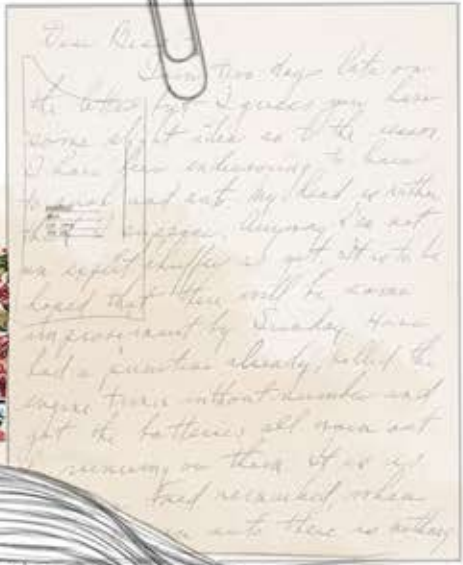 Dear
I am two days late on
the letter but I guess you have
some slight idea as to the reason
I have been endeavoring to learn
and my head is rather
suppose. Anyway I'm not
an expert as yet. It is to be
hoped that there will be some
improvement by Sunday. Have
had a puncture already, rolled the
engine times without number and
got the batteries all worn out
running on them. It is as
Fred remarked, when
auto there is nothing